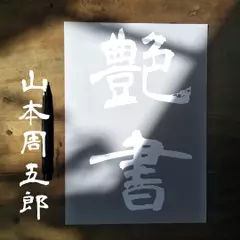 艶書
山本周五郎